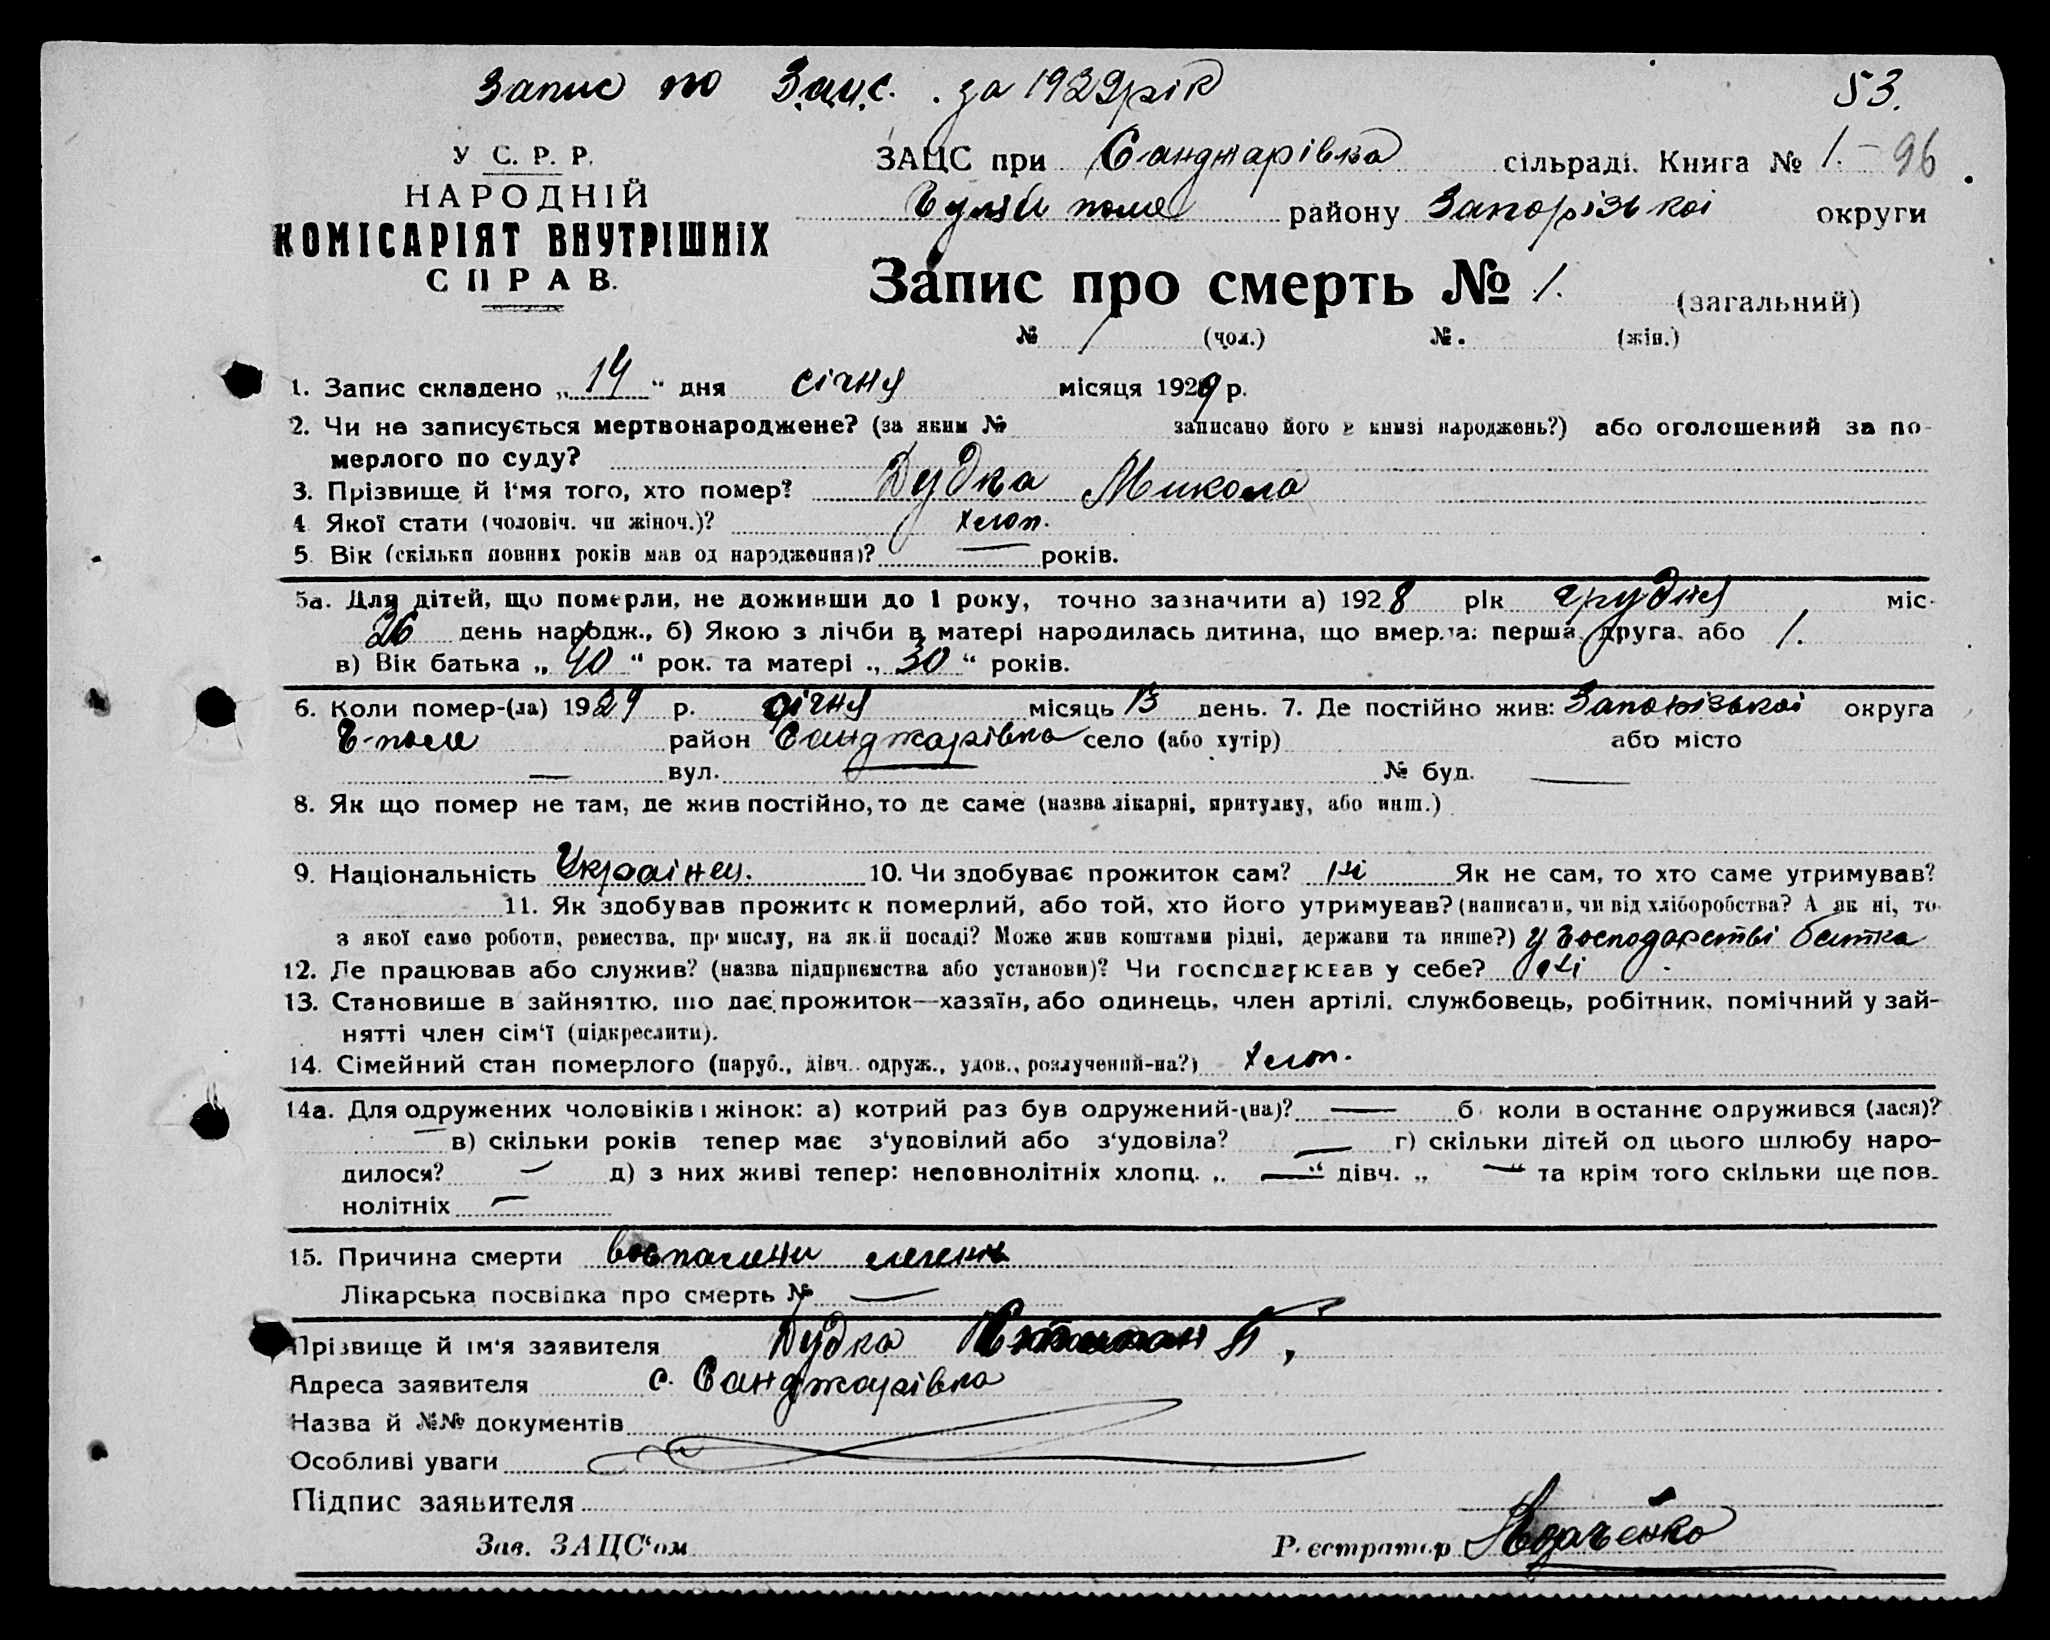 Запис по З.а.ц.с. за 1929 рік 53.
У С. Р. Р.
НАРОДНІЙ
КОМІСАРІЯТ ВНУТРІШНІХ
СПРАВ.
ЗАЦС при Санджарівка сільраді. Книга № 1. - 96
Гуляй поле району Запорізької округи
Запис про смерть № 1. (загальний)
№ 1 (чол.) №. (жін.)
1. Запис складено „14“ дня січня місяця 1929 р.
2. Чи не записується мертвонароджене? (за яким № записано його в книзі народжень?) або оголошений за по-
мерлого по суду?
3. Прізвище й і'мя того, хто помер? Дудка Микола
4 Якої стати (чоловіч. чи жіноч.)? хлоп.
5. Вік (скільки повних років мав од народження)? — років.
5а. Для дітей, що померли, не доживши до 1 року, точно зазначити а) 1928 рік грудня міс.
26 день народж., б) Якою з лічби в матері народилась дитина, що вмерла: перша, друга, або 1.
в) Вік батька „40“ рок. та матері „30“ років.
6. Коли помер-(ла) 1929 р. січня місяць 13 день. 7. Де постійно жив: Запорізької округа
Г-поле район Санджарівка село (або хутір) або місто
— вул. № буд. —
8. Як що помер не там, де жив постійно, то де саме (назва лікарні, притулку, або инш.)
9. Національність Українец. 10. Чи здобуває прожиток сам? ні Як не сам, то хто саме утримував?
11. Як здобував прожиток померлий, або той, хто його утримував? (написати, чи від хліборобства? А як ні, то
з якої саме роботи, ремества, промислу, на якій посаді? Може жив коштами рідні, держави та инше?) у господарстві батька
12. Де працював або служив? (назва підприємства або установи)? Чи господарював у себе? ні
13. Становище в зайняттю, що дає прожиток—хазяїн, або одинець, член артілі, службовець, робітник, помічний у зай-
нятті член сім'ї (підкреслити).
14. Сімейний стан померлого (паруб., дівч. одруж., удов., розлучений-на?) хлоп.
14а. Для одружених чоловіків і жінок: а) котрий раз був одружений-(на)? — б коли в останнє одружився (лася)?
— в) скільки років тепер має з'удовілий або з'удовіла? — г) скільки дітей од цього шлюбу наро-
дилося? — д) з них живі тепер: неповнолітніх хлопц. „—“ дівч. „—“ та крім того скільки ще пов-
нолітніх —
15. Причина смерти воспалени легень
Лікарська посвідка про смерть № —
Прізвище й ім'я заявителя Дудка
Адреса заявителя с. Санджарівка
Назва й №№ документів
Особливі уваги
Підпис заявителя
Зав. ЗАЦС'ом Реєстратор